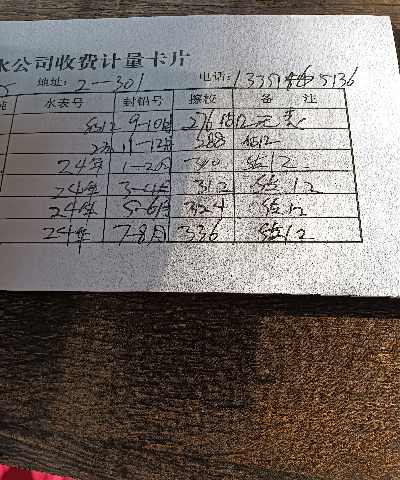 水公司收费计量卡片
地址: 2-301 电话: 5136
水表号 封铅号 擦校 备注
结12 9-10月 276
23年 11-12月 288 结12
24年 1-2月 300 结12
24年 3-4月 312 结12
24年 5-6月 324 结12
24年 7-8月 336 结12